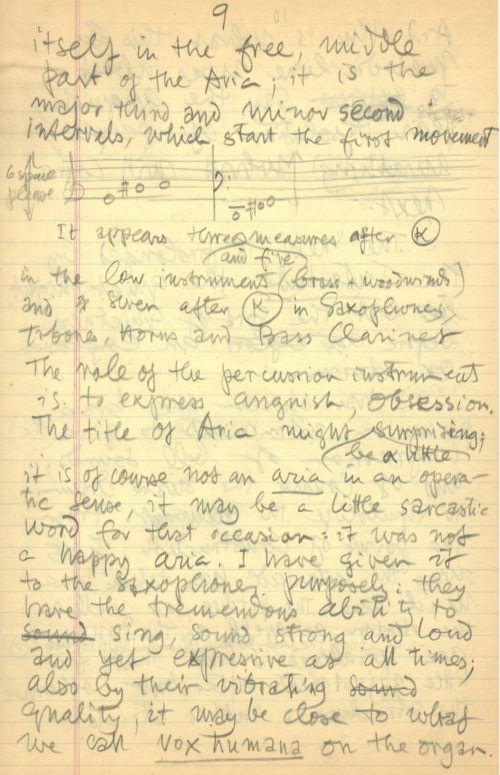 9
itself in the free, middle
part of the Aria; it is the
major third and minor second
intervals, which start the first movement
6 space
please
It appears three measures after (K)
and five
in the low instruments (brass + woodwinds)
and seven after (K) in Saxophones,
Trbones, Horns and Bass Clarinet
The role of the percussion instruments
is to express anguish, obsession.
The title of Aria might surprising;
be a little
it is of course not an aria in an opera-
tic sense, it may be a little sarcastic
word for that occasion: it was not
a happy aria. I have given it
to the saxophones purposely: they
have the tremendous ability to
sound sing, sound strong and loud
and yet expressive at all times;
also by their vibrating sound
quality, it may be close to what
we call vox humana on the organ.